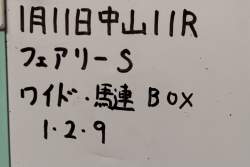 1月11日中山11R
フェアリーS
ワイド・馬連 BOX
1・2・9